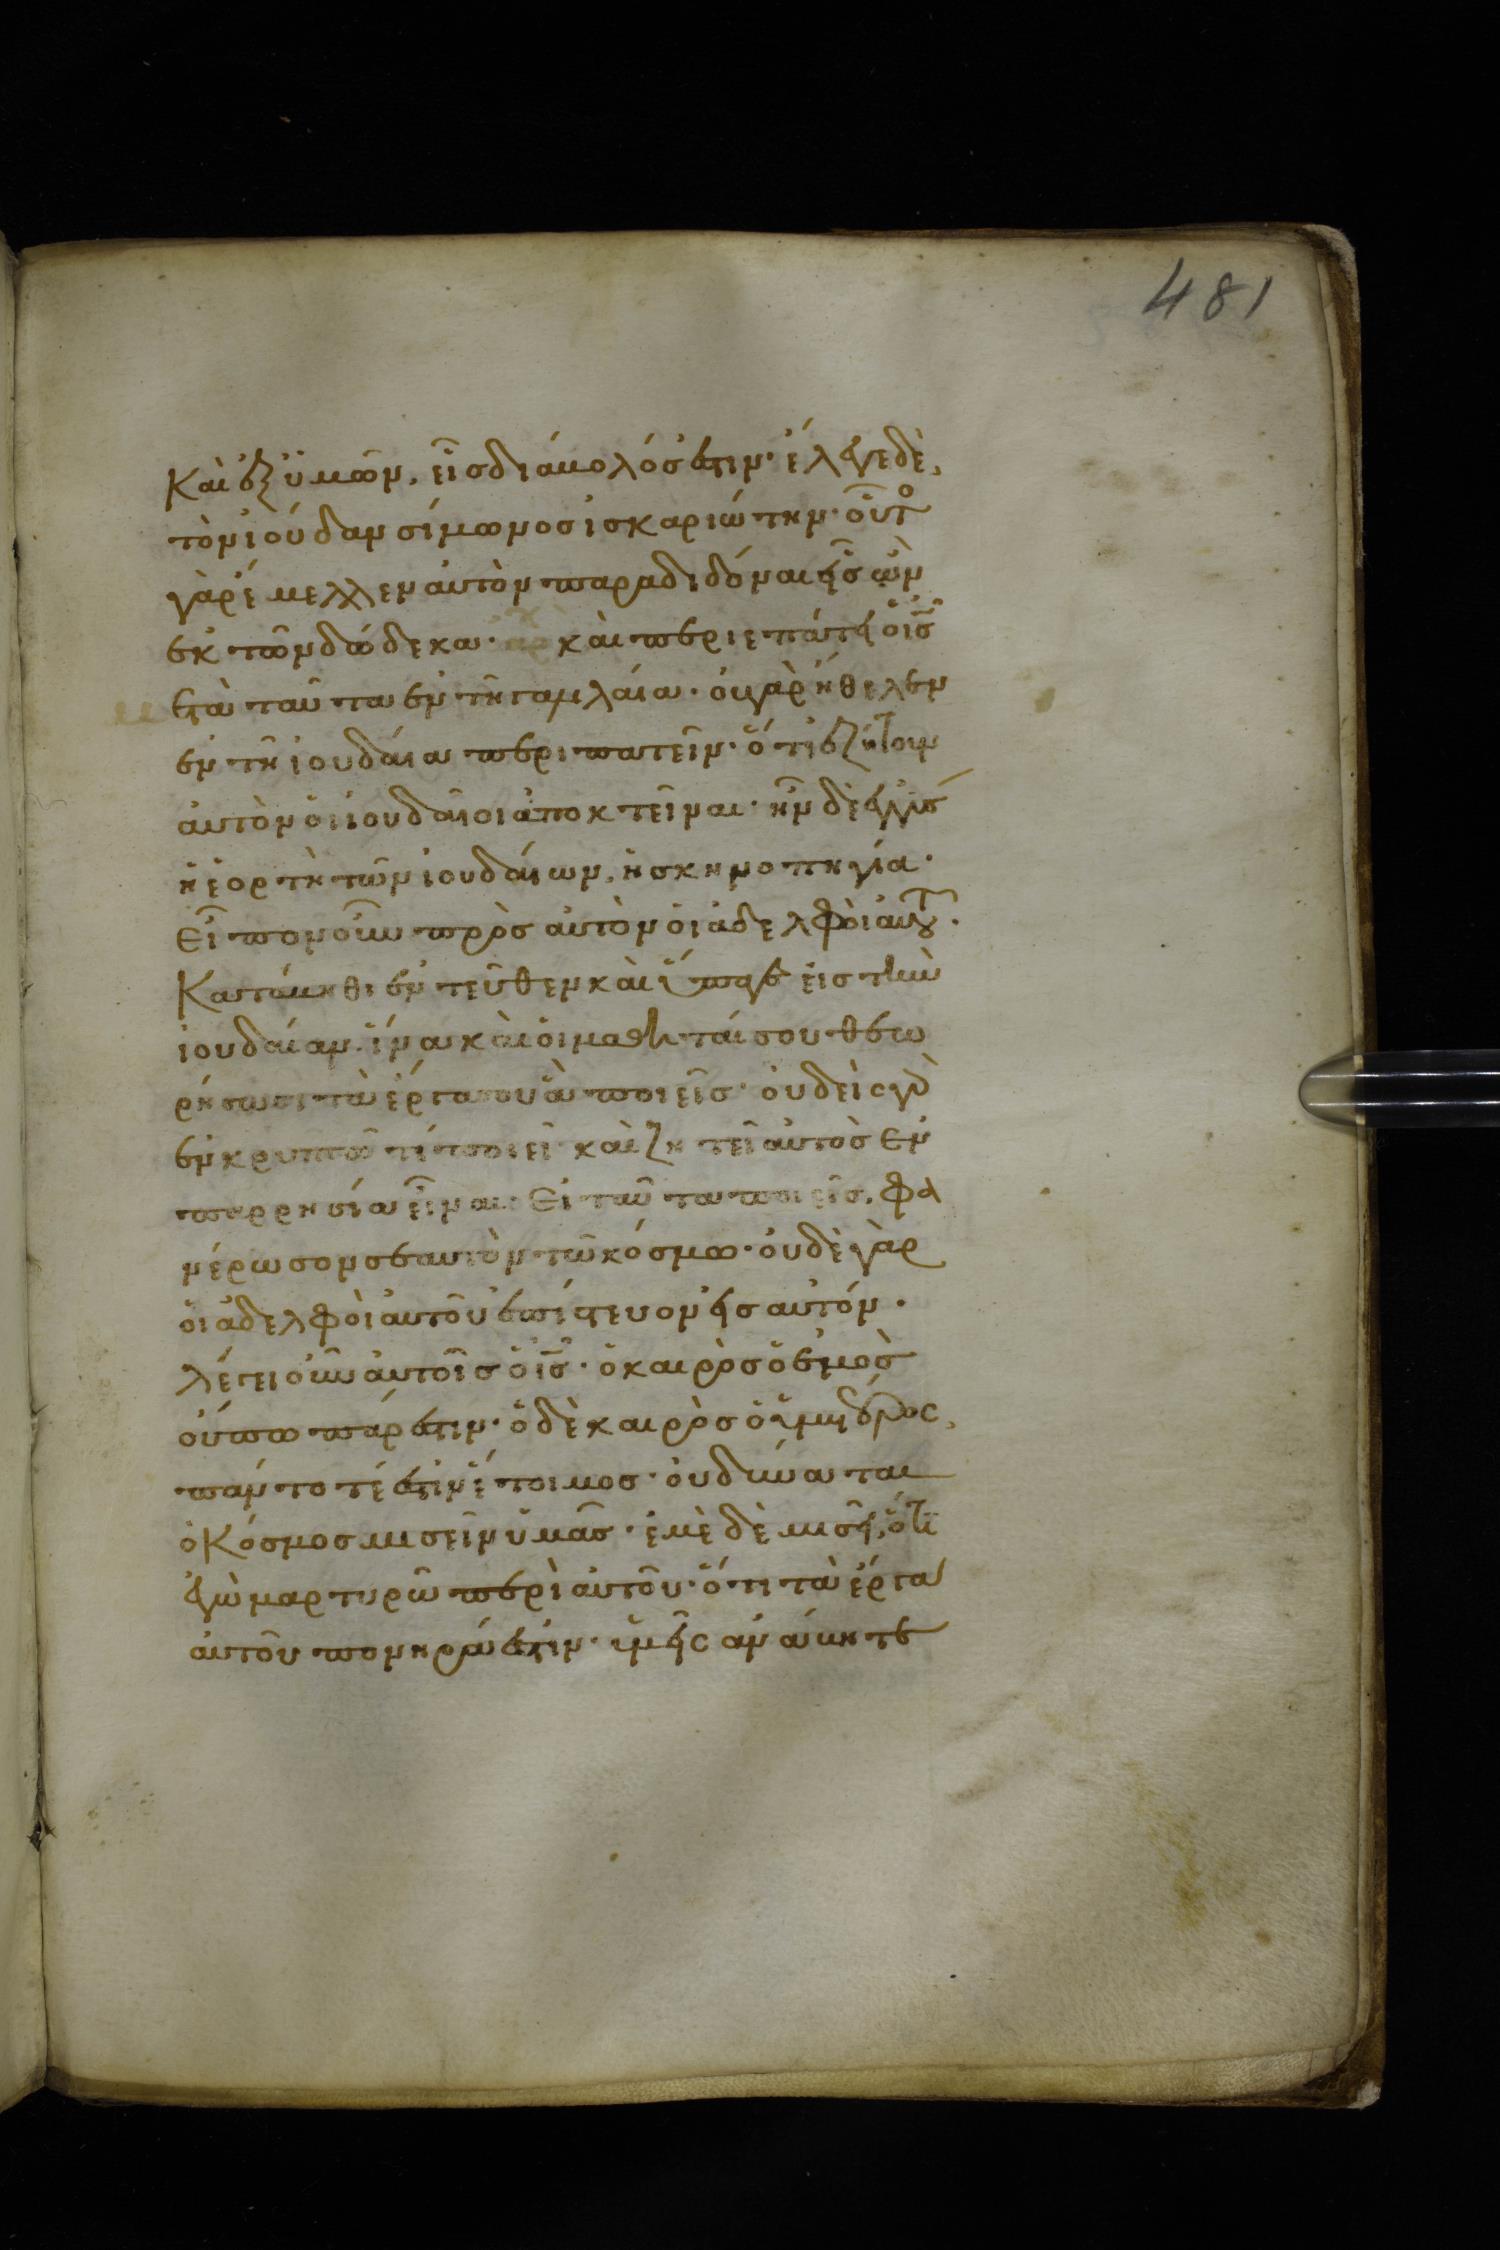 481
Καὶ ἐξ ὑμῶν, εἷς διάβολός ἐστιν· ἔλεγε δὲ,
τὸν ἰούδαν σίμωνος ἰσκαριώτην· οὗτο
γὰρ ἔμελλεν αὐτὸν παραδιδόναι εἷς ὢν
ἐκ τῶν δώδεκα· καὶ περιεπάτει ὁ ἰς
ετὰ ταῦτα ἐν τῆ γαλιλαία· οὐ γὰρ ἤθελεν
ἐν τῆ ἰουδαία περιπατεῖν· ὅτι ἐζήτουν
αὐτὸν οἱ ἰουδαῖοι ἀποκτεῖναι· ἦν δὲ ἐγγὺς
ἡ ἑορτὴ τῶν ἰουδαίων, ἡ σκηνοπηγία·
Εἶπον οὖν πρὸς αὐτὸν οἱ ἀδελφοὶ αὐτοῦ·
Κατάβηθι ἐντεῦθεν καὶ ὕπαγε εἰς τὴν
ἰουδαίαν. ἵνα καὶ οἱ μαθηταί σου θεω
ρήσωσι τὰ ἔργα σου ἃ ποιεῖς· οὐδεὶς γὰρ
ἐν κρυπτῶ τί ποιεῖ καὶ ζητεῖ αὐτὸς ἐν
παρρησία εἶναι· Εἰ ταῦτα ποιεῖς, φα
νέρωσον σεαυτὸν τῶ κόσμω· οὐδὲ γὰρ
οἱ ἀδελφοὶ αὐτοῦ ἐπίστευον εἰς αὐτόν·
λέγει οὖν αὐτοῖς ὁ ἰς· ὁ καιρὸς ὁ ἐμὸς
οὔπω πάρεστιν· ὁ δὲ καιρὸς ὁ ὑμέτερος,
πάντοτέ ἐστιν ἕτοιμος· οὐ δύναται
ὁ Κόσμος μισεῖν ὑμᾶς· ἐμὲ δὲ μισεῖ, ὅτι
ἐγὼ μαρτυρῶ περὶ αὐτοῦ· ὅτι τὰ ἔργα
αὐτοῦ πονηρά ἐστιν· ὑμεῖς ἀνάβητε